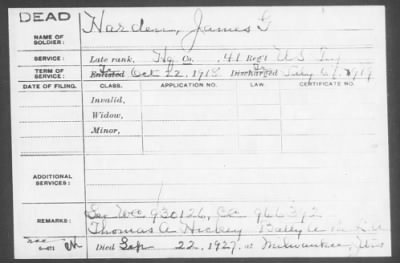 DEAD
NAME OF SOLDIER: Harden, James G
SERVICE: Late rank, Hq Co. 41 Reg't U S Inf
TERM OF SERVICE: Enlisted Oct 22, 1918 Discharged 1919
DATE OF FILING. CLASS. APPLICATION NO. LAW. CERTIFICATE NO.
Invalid,
Widow,
Minor,
ADDITIONAL SERVICES:
REMARKS: See WC 930126, Ctf 966392
Thomas A Hickey Baty A
Died Sep 22, 1927, at Milwaukee, Wis